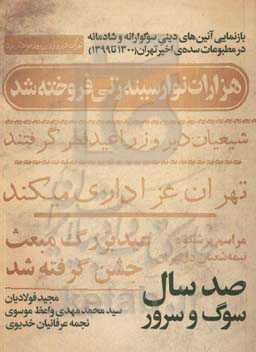 بازنمایی آئین‌های دینی سوگوارانه و شادمانه
در مطبوعات سده‌ی اخیر تهران (۱۳۰۰ تا ۱۳۹۹)
هزاران نوار سینه زنی فروخته شد
شیعیان دیروز را عید فطر گرفتند
تهران عزاداری میکند
مراسم پرشکوه
نیمه شعبان
عید بزرگ مبعث
جشن گرفته شد
صد سال
سوگ و سرور
مجید فولادیان
سید محمدمهدی واعظ موسوی
نجمه عرفانیان خدیوی